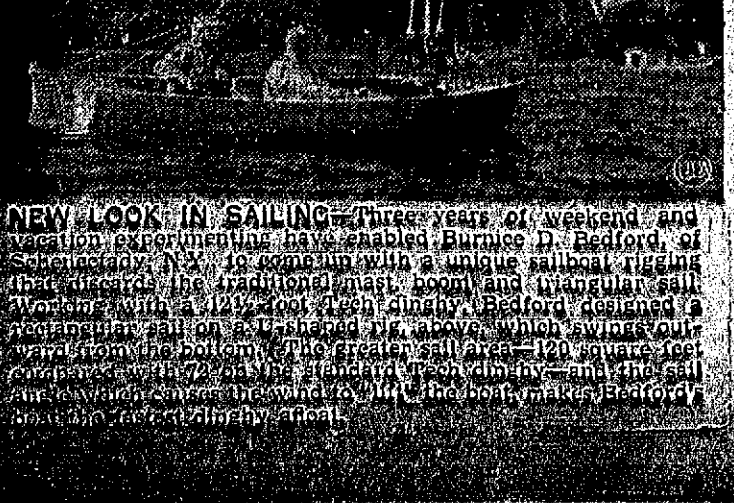 NEW LOOK IN SAILING—Three years of weekend and
vacation experimenting have enabled Burnice D. Bedford, of
Schenectady, N.Y., to come up with a unique sailboat rigging
that discards the traditional mast, boom and triangular sail.
Working with a 12½-foot Tech dinghy, Bedford designed a
rectangular sail on a U-shaped rig, above, which swings out-
ward from the bottom. The greater sail area—120 square feet
compared with 72 on the standard Tech dinghy—and the sail
angle which causes the wind to "lift" the boat, makes Bedford's
boat the fastest dinghy afloat.